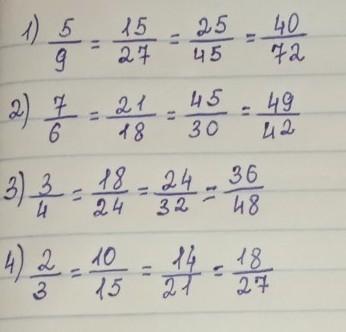 1) 5/9 = 15/27 = 25/45 = 40/72
2) 7/6 = 21/18 = 45/30 = 49/42
3) 3/4 = 18/24 = 24/32 = 36/48
4) 2/3 = 10/15 = 14/21 = 18/27